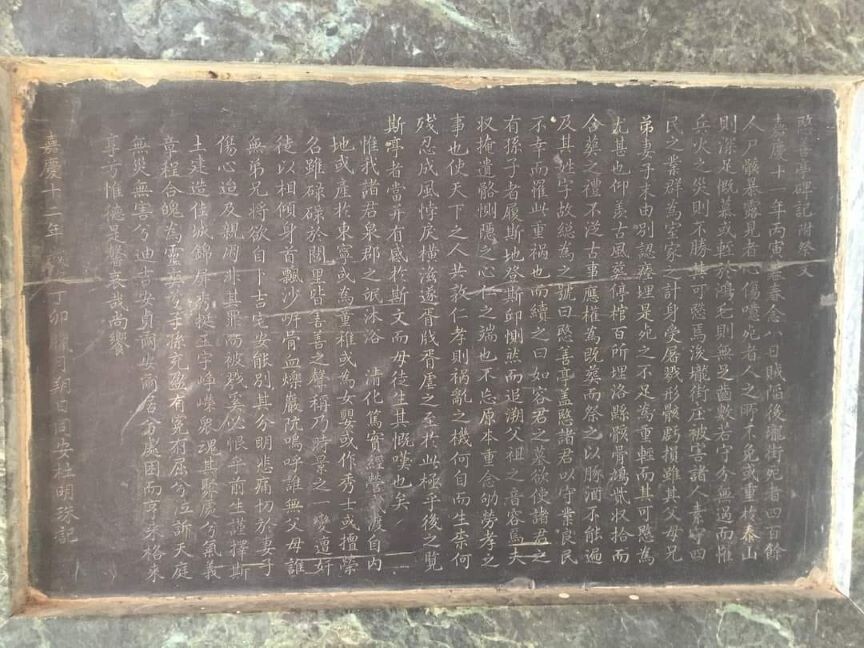 愍善亭碑記附祭文
嘉慶十一年丙寅春念八日賊陷後壠街死者四百餘
人尸骸暴露見者心傷噫死者人之所不免或重於泰山
則深足慨慕或輕於鴻毛則無足齒數若守分無過而罹
兵火之災則不勝其可愍焉後壠街庄被害諸人素守四
民之業群為室家之計身受屠戮形骸虧損雖其父母兄
弟妻子末由別認瘞埋是死之不足為重輕而其可愍為
尤甚也仰羨古風爰停棺百所埋洛縣骸骨鳩貲收拾而
舍葬之禮不泛古事應權為既葬而祭之以豚酒不能遍
及其姓字故總為之號曰愍善亭盖愍諸君以守業良民
不幸而罹此重禍也而續之曰如容君之墓欲使諸君之
有孫子者履斯地登斯邱惻然而追溯父祖之音容焉夫
収掩遺骼惻隱之心仁之端也不忘原本重念劬勞孝之
事也使天下之人共敦仁孝則禍亂之機何自而生柰何
殘忍成風恃戾橫滋遂胥戕胥虐之至於此極乎後之覽
斯亭者當并有感於斯文而毋徒生其慨嘆也矣
惟我諸君泉郡之氓沐浴 清化篤實經營或渡自內
地或產於東寧或為童稚或為女嬰或作秀士或擅榮
名雖碌碌於閭里皆善善之聲稱乃時景之一變遭奸
徒以相傾身首飄沙岍骨血燥巖阬嗚呼誰無父母誰
無弟兄將欲自卜吉宅安能別其分明悲痛切於妻子
傷心迨及親朋非其罪而被戮寞必恨乎前生謹擇斯
土建造佳城錦屏秀挺玉字崢嶸眾魂其聚處兮氣義
章程合魄為靈爽兮子孫充盈有冤有屈兮泣訴天庭
無災無害兮迪吉安貞爾安爾居兮處困而亨來格來
享兮惟德是馨哀哉尚饗
嘉慶十二年歲丁卯月朔日同安杜明珠記